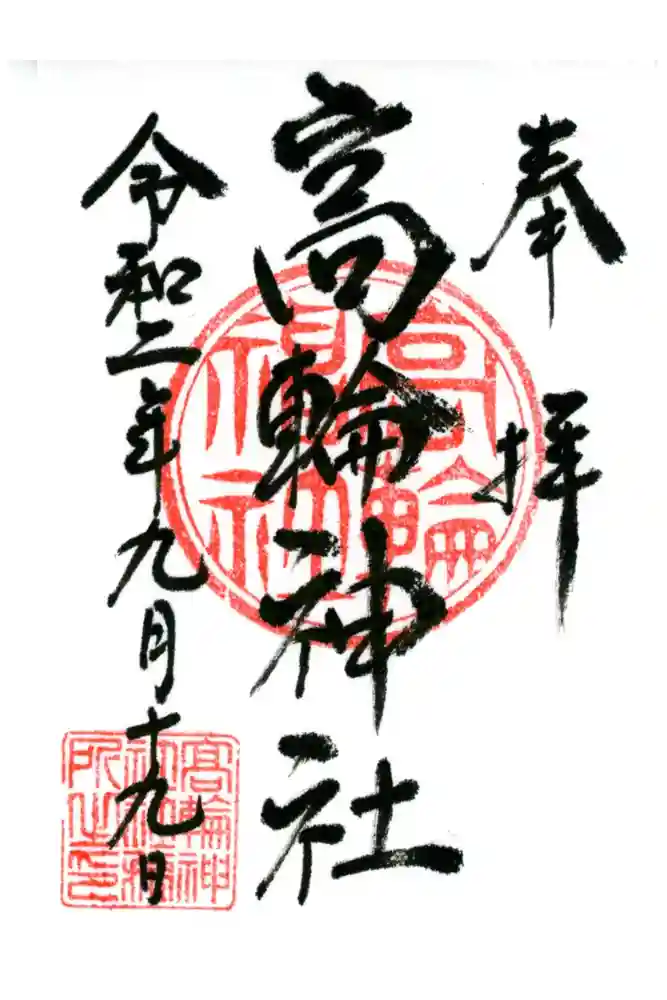 奉拝
高輪神社
令和二年九月十九日
高輪神社
高輪神